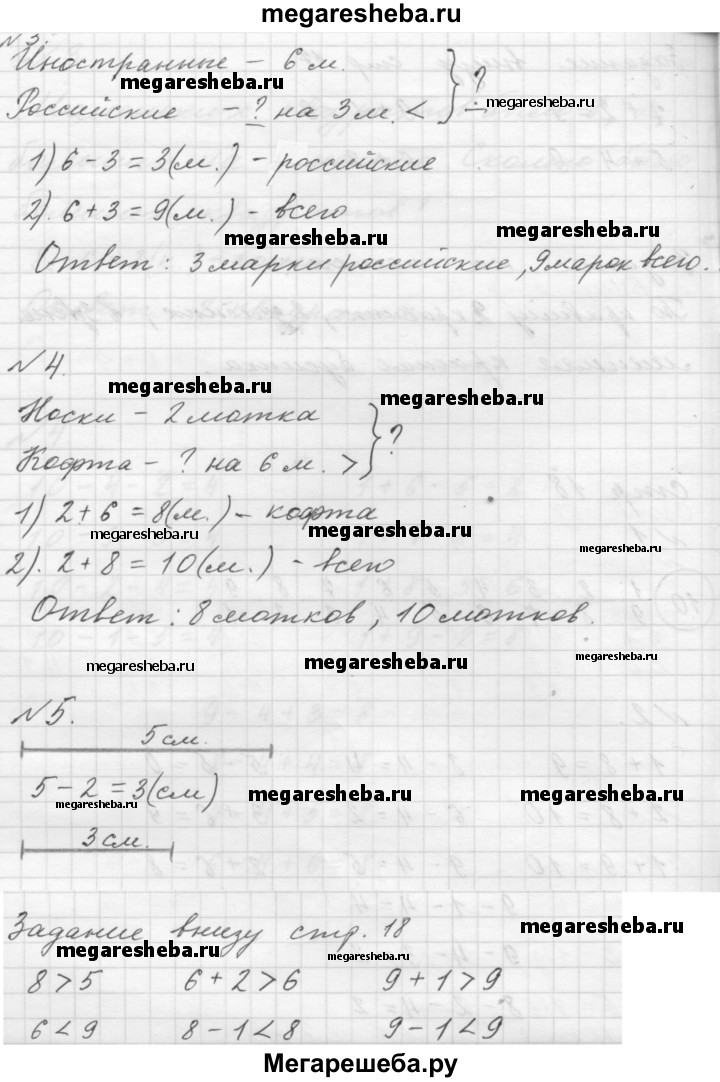 megaresheba.ru
№3.
Иностранные – 6 м. } ?
megaresheba.ru
megaresheba.ru
Российские – ? на 3 м. <
1) 6 – 3 = 3 (м.) – российские
2). 6 + 3 = 9 (м.) – всего
megaresheba.ru
megaresheba.ru
Ответ: 3 марки российские, 9 марок всего.
№4.
megaresheba.ru
megaresheba.ru
Носки – 2 мотка } ?
Кофта – ? на 6 м. >
1) 2 + 6 = 8 (м.) – кофта
megaresheba.ru
megaresheba.ru
megaresheba.ru
2). 2 + 8 = 10 (м.) – всего
Ответ: 8 мотков, 10 мотков.
megaresheba.ru
megaresheba.ru
megaresheba.ru
№5.
5 см.
5 – 2 = 3 (см)
megaresheba.ru
megaresheba.ru
megaresheba.ru
3 см.
Задание внизу стр. 18
megaresheba.ru
megaresheba.ru
megaresheba.ru
8 > 5 6 + 2 > 6 9 + 1 > 9
6 < 9 8 – 1 < 8 9 – 1 < 9
Мегарешеба.ру